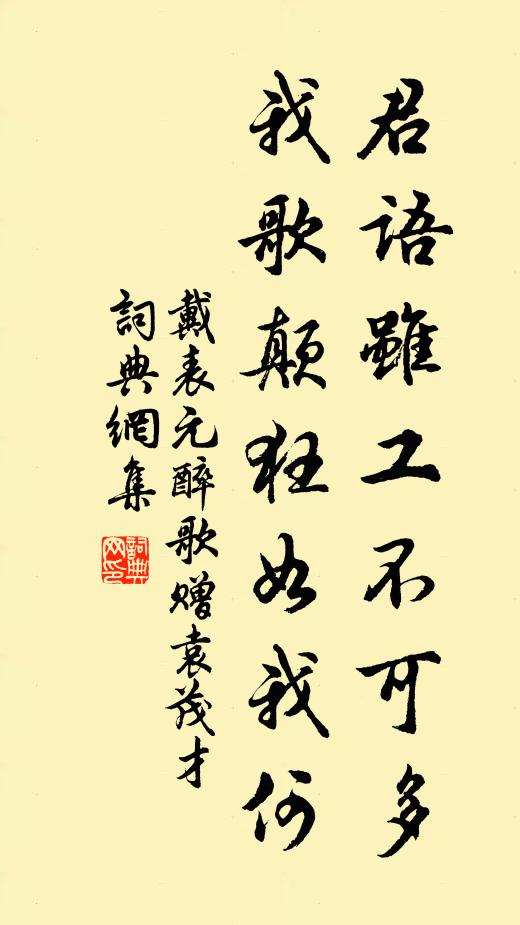 君語雖工不可多
我歌顛狂如我何
戴表元醉歌贈袁茂才
詞典網集
詞典網印